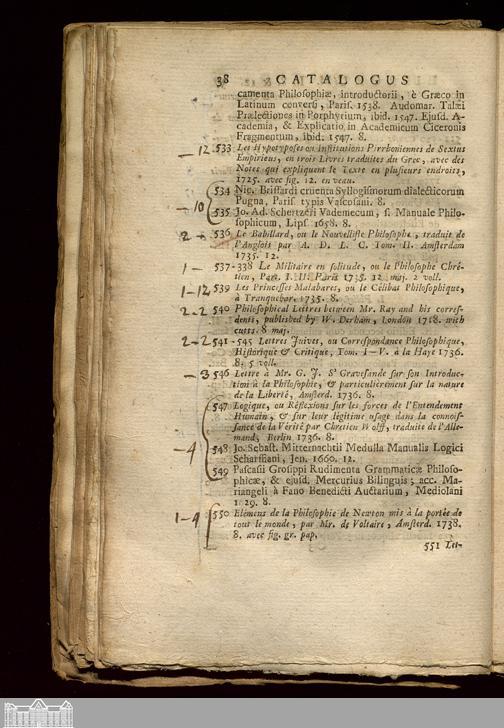 38 CATALOGUS
camenta Philosophiæ, introductorii, è Græco in
Latinum conversi, Paris. 1538. Audomar. Talæi
Prælectiones in Porphyrium, ibid. 1547. Ejusd. A-
cademia, & Explicatio in Academicum Ciceronis
Fragmentum, ibid. 1547. 8.
— 12 533 Les Hypotyposes ou Institutions Pirrhoniennes de Sextus
Empirieus, en trois Livres traduites du Grec, avec des
Notes qui expliquent le Texte en plusieurs endroits,
1725. avec fig. 12. en veau.
534 Nic. Brissardi cruenta Syllogismorum dialecticorum
Pugna, Paris typis Vascosani. 8.
— 10 535 Jo. Ad. Schertzeri Vademecum, s. Manuale Philo-
sophicum, Lips. 1658. 8.
2 — 536 Le Babillard, ou le Nouvelliste Philosophe, traduit de
l'Anglois par A. D. L. C. Tom. II. Amsterdam
1735. 12.
1 — 537-338 Le Militaire en solitude, ou le Philosophe Chré-
tien, Part. I. II. Paris 1735. 12. maj. 2 voll.
1 — 12 539 Les Princesses Malabares, ou le Célibat Philosophique,
à Tranquebar. 1735. 8.
2 — 2 540 Philosophical Letters between Mr. Ray and his corres-
dents, published by W. Derham, London 1718. with
cutts. 8 maj.
2 — 2 541-545 Lettres Juives, ou Correspondance Philosophique,
Historique & Critique, Tom. I—V. à la Haye 1736.
8. 5 voll.
— 3 546 Lettre à Mr. G. J. S' Gravesande sur son Introduc-
tioni à la Philosophie, & particulièrement sur la nature
de la Liberté, Amsterd. 1736. 8.
547 Logique, ou Réflexions sur les forces de l'Entendement
Humain, & sur leur légitime usage dans la connois-
sance de la Vérité par Chretien Wolff, traduite de l'Alle-
mand, Berlin 1736. 8.
— 4 548 Jo. Sebast. Mitternachtii Medulla Manualis Logici
Scharfiani, Jen. 1660. 12.
549 Pascasii Grosippi Rudimenta Grammaticæ Philoso-
phicæ, & ejusd. Mercurius Bilinguis; acc. Ma-
riangeli à Fano Benedicti Auctarium, Mediolani
1629. 8.
1 — 4 550 Elémens de la Philosophie de Newton mis à la portée de
tout le monde, par Mr. de Voltaire, Amsterd. 1738.
8. avec fig. gr. pap.
551 Let-